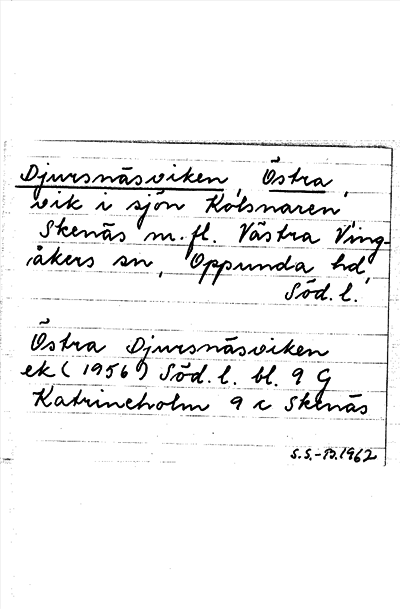 Djursnäsviken, Östra,
vik i sjön Kolsnaren,
Skenäs m.fl. Västra Ving-
åkers sn, Oppunda hd,
Söd. l.
Östra Djursnäsviken
ek (1956) Söd. l. bl. 9 G
Katrineholm 9 c Skenäs
S.S.-B.1962